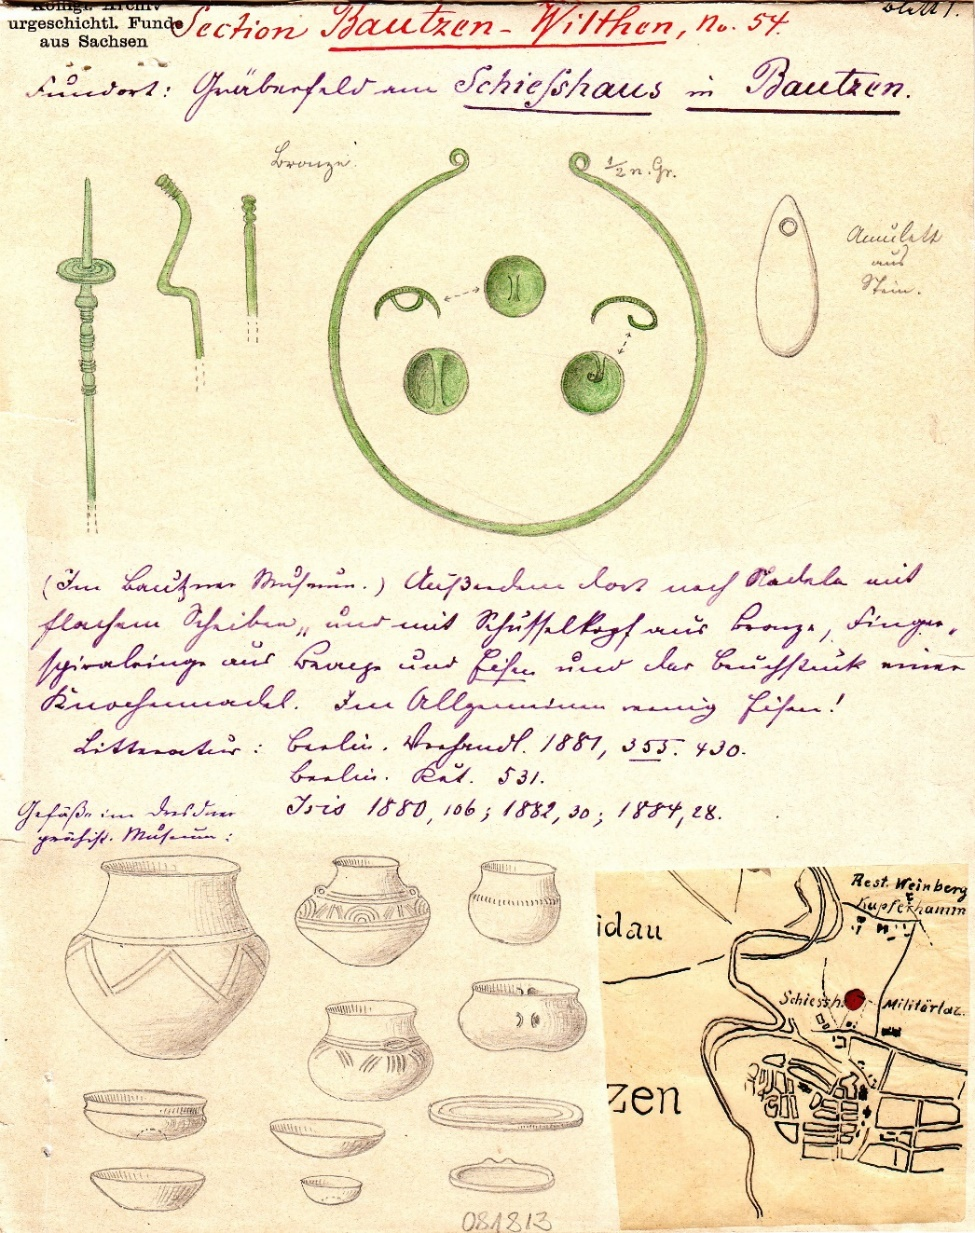 Königl. Archiv
urgeschichtl. Funde
aus Sachsen
Section Bautzen-Wilthen, No. 54.
Blatt 1.
Fundort: Gräberfeld am Schiesshaus in Bautzen.
Bronze.
1/2 n. Gr.
Amulett
aus
Stein.
(Im Bautzner Museum.) Außerdem dort noch Nadeln mit
flachem Scheiben„ und mit Schüsselkopf aus Bronze, Finger-
spiralringe aus Bronze und Eisen und das Bruchstück einer
Knochennadel. Im Allgemeinen wenig Eisen!
Litteratur: Berlin. Verhandl. 1881, 355. 430.
Berlin. Kat. 531.
Isis 1880, 106; 1882, 30; 1884, 28.
Gefäße im Dresdner
prähist. Museum:
Rest. Weinberg
Kupferhamm
idau
Schiessh.
Militärlaz.
zen
081813